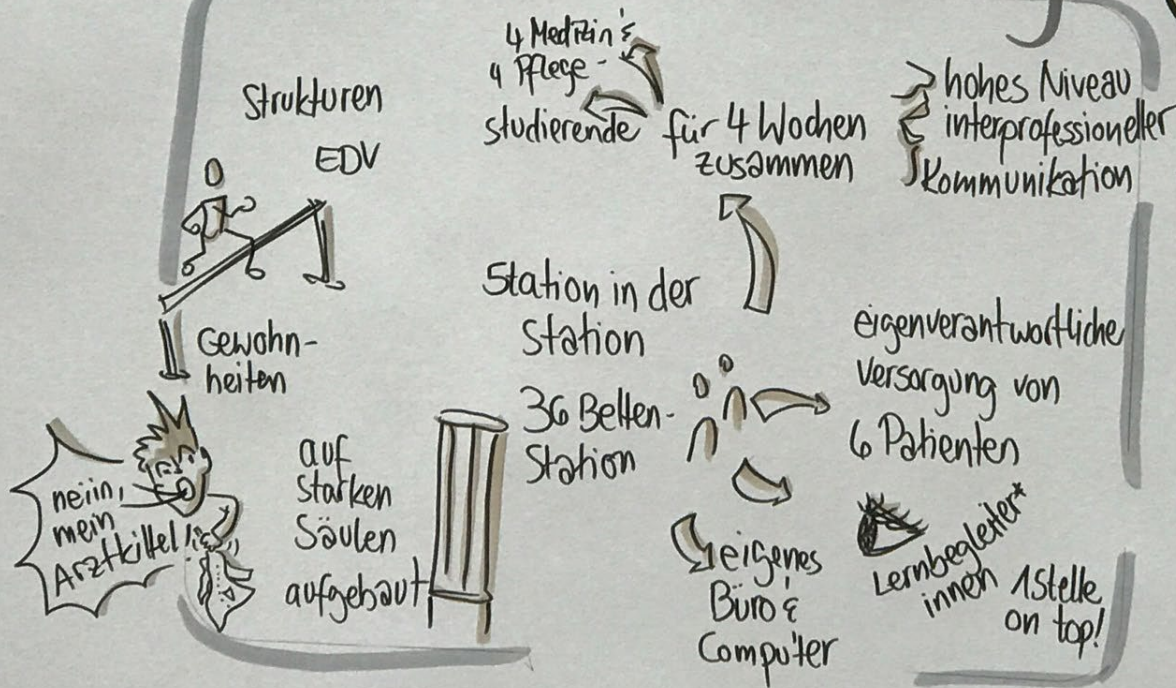 Strukturen
EDV
Gewohn-
heiten
neiin,
mein
Arztkittel!
auf
starken
Säulen
aufgebaut
4 Medizin &
4 Pflege-
studierende
für 4 Wochen
zusammen
hohes Niveau
interprofessioneller
Kommunikation
Station in der
Station
36 Betten-
Station
eigenverantwortliche
Versorgung von
6 Patienten
eigenes
Büro &
Computer
Lernbegleiter*
innen
1 Stelle
on top!